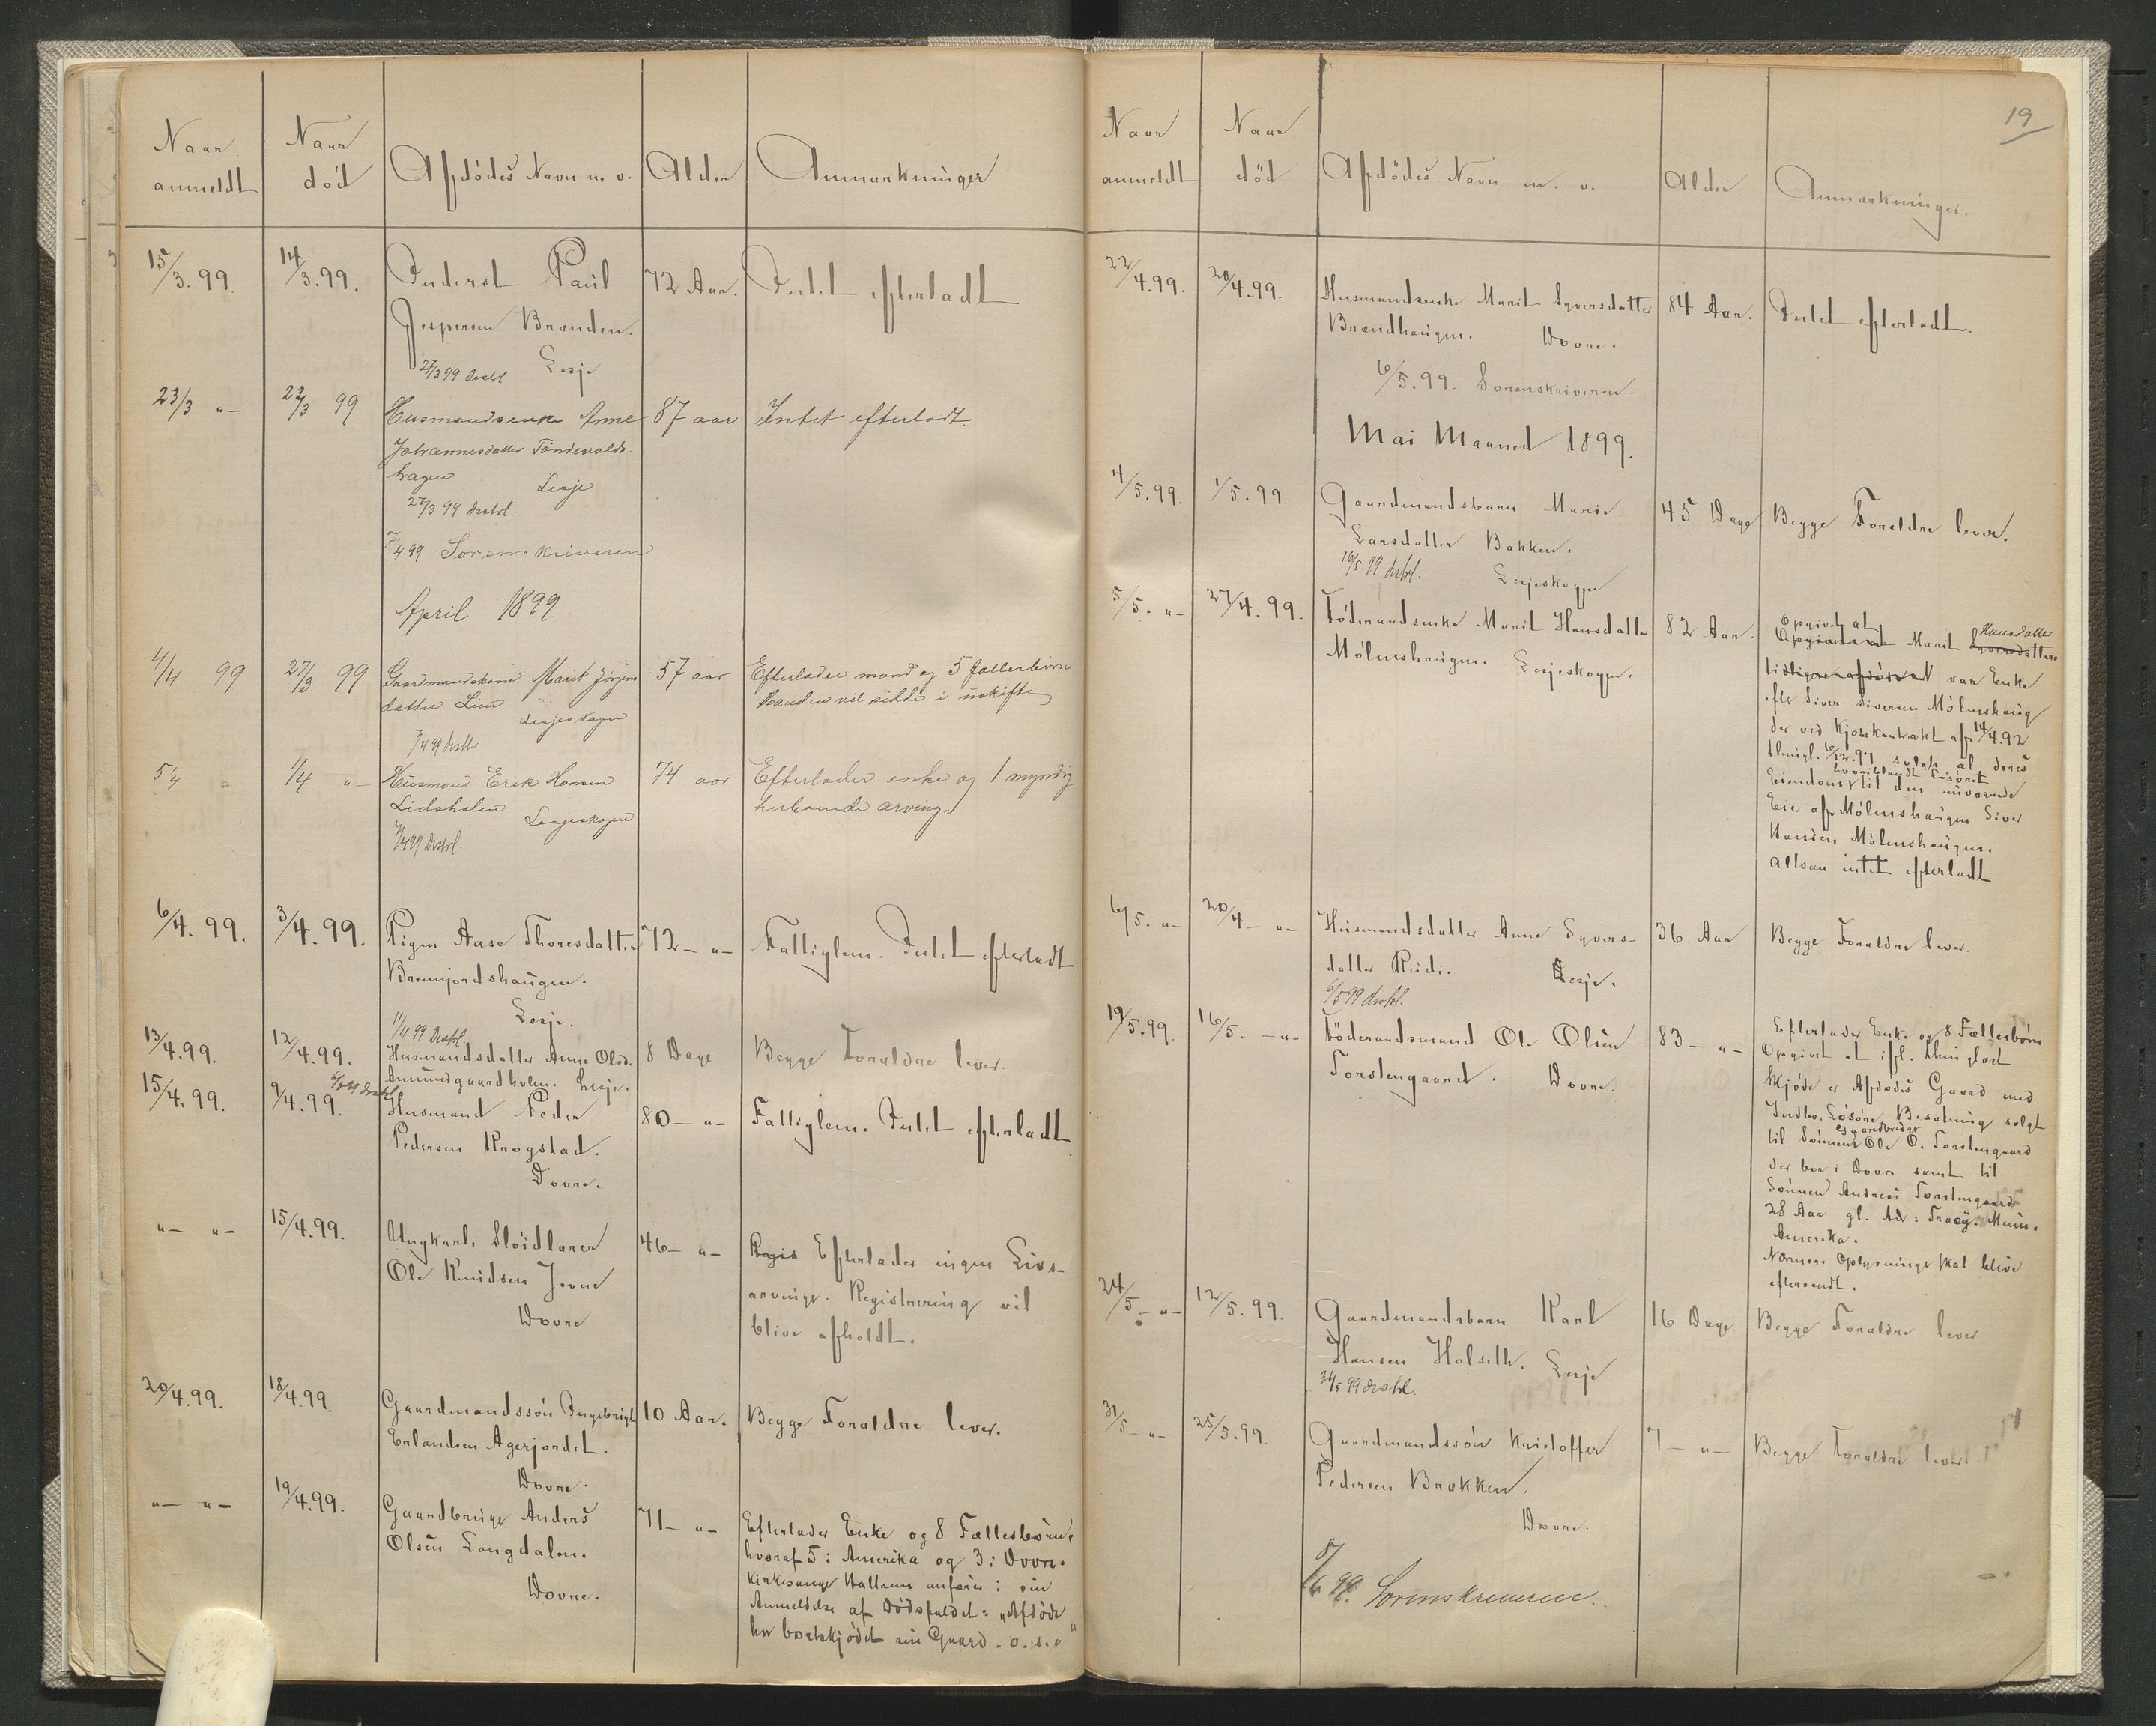 Naar anmeldt | Naar död | Afdödes Navn m. v. | Alder | Anmærkninger
15/3.99. | 14/3.99. | Inderst Paul | 72 Aar. | Intet efterladt
Jespersen Brænden.
27/3 99 Lesje
23/3 "- | 22/3 99 | Husmandsenke Anne | 87 aar | Intet efterladt.
Johannesdatter
hagen Lesje
27/3 99
7/4 99 Sorenskriveren
April 1899
4/4 99 | 27/3 99 | Gaardmandskone Marit Jörgens | 57 aar | Efterlader mand og 5 fællesbörn
datter Lien Lesjeskogen | Manden vil sidde i uskifte
7/4 99
5/4 " | 1/4 "- | Husmand Erik Hansen | 74 aar | Efterlader enke og 1 myndig
Lesjeskogen | herboende arving.
6/4.99. | 3/4.99. | Pigen Aase Thoresdatter | 72 - "- | Fattiglem. Intet efterladt
Lesje.
13/4.99. | 12/4.99. | Husmandsdatter Anne Olsd. | 8 Dage | Begge Forældre lever.
Amundgaardholen. Lesje.
15/4.99. | 9/4.99. | Husmand Peder | 80 - "- | Fattiglem. Intet efterladt
Pedersen Krogstad.
Dovre.
"- "- | 15/4.99. | Ungkarl, | 46 - "- | Efterlader ingen Livs-
Ole Knudsen Jevne | arvinge. Registrering vil
Dovre | blive afholdt.
20/4.99. | 18/4.99. | Gaardmandssön Ingebrigt | 10 Aar. | Begge Forældre lever.
Erlandsen Agerjordet.
Dovre.
"- "- | 19/4.99. | Gaardbruger Anders | 71 - "- | Efterlader Enke og 8 Fællesbörn,
Olsen Langdalen. | hvoraf 5 i Amerika og 3 i Dovre.
Dovre. | Kirkesanger anförer i sin
Anmeldelse af Dödsfaldet: "Afdöde
har bortskjödet sin Gaard. o.s.v"
19
Naar anmeldt | Naar död | Afdödes Navn m. v. | Alder | Anmærkninger.
22/4.99. | 20/4.99. | Husmandsenke Marit Syversdatter | 84 Aar. | Intet efterladt.
Brændhaugen. Dovre.
6/5.99. Sorenskriveren.
Mai Maaned 1899.
4/5.99. | 1/5.99. | Gaardmandsbarn Marie | 45 Dage | Begge Forældre lever.
Larsdatter Bakken.
16/5 99 Lesjeskogen
5/5. "- | 27/4.99. | Föderaadsenke Marit Hansdatter | 82 Aar. | Opgivet at
Mölmshaugen. Lesjeskogen. | Marit Hansdatter
var Enke
efter Siver Siversen Mölmshaug
der ved Kjöbekontrakt af 14/4.92
thingl. 6/12.97 solgte al deres
Eiendom til den nuværende
Eier af Mölmshaugen Siver
Hansen Mölmshaugen.
altsaa intet efterladt
6/5. "- | 20/4 - "- | Husmandsdatter Anne Syvers- | 36 Aar | Begge Forældre lever.
datter Rudi. Lesje.
6/5 99
19/5.99. | 16/5. - "- | Föderaadsmand Ole Olsen | 83 - "- | Efterlader Enke og 8 Fællesbörn
Torstengaard. Dovre. | Opgivet at ifl. thinglæst
Skjöde er Afdödes Gaard med
Indbo, Lösöre, Besætning solgt
gaardbruger
til Sönnen Ole O. Torstengaard
der bor i Dovre samt til
Sönnen Andreas Torstengaard
28 Aar gl. Adr: Tracy. Minn.
Amerika.
Nærmere Oplysninger skal blive
eftersendt.
24/5 - "- | 12/5.99. | Gaardmandsbarn Karl | 16 Dage | Begge Forældre lever
Hansen Holseth. Lesje
31/5 - "- | 25/5.99. | Gaardmandssön Kristoffer | 7 - "- | Begge Forældre lever
Pedersen Brækken.
Dovre.
8/6 99. Sorenskriveren.